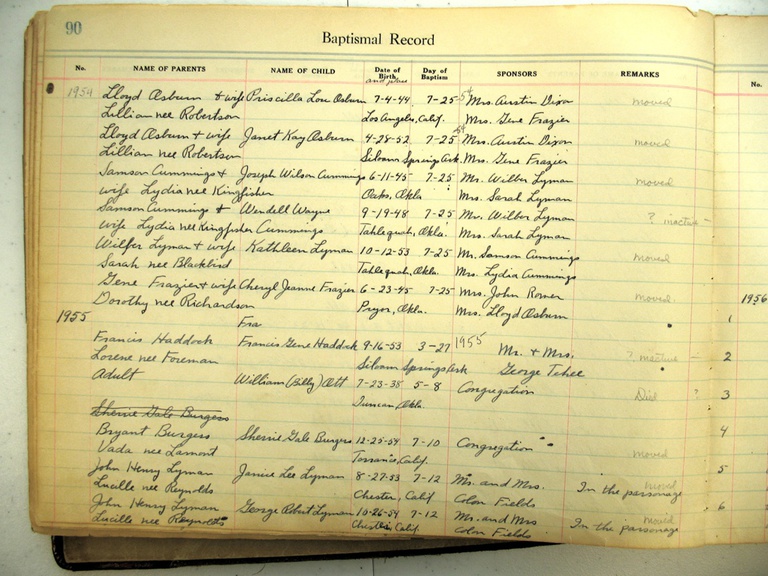 90
Baptismal Record
No. NAME OF PARENTS NAME OF CHILD Date of Birth and place Day of Baptism SPONSORS REMARKS No.
1954 Lloyd Osburn & wife Priscilla Lou Osburn 7-4-44 7-25 54 Mrs. Austin Dixon moved
Lillian nee Robertson Los Angeles, Calif. Mrs. Gene Frazier
Lloyd Osburn & wife Janet Kay Osburn 4-28-52 7-25 54 Mrs. Austin Dixon moved
Lillian nee Robertson Siloam Springs Ark. Mrs. Gene Frazier
Samson Cummings & Joseph Wilson Cummings 6-11-45 7-25 Mr. Wilber Lyman moved
wife Lydia nee Kingfisher Oaks, Okla Mrs. Sarah Lyman
Samson Cummings & Wendell Wayne 9-19-48 7-25 Mr. Wilber Lyman ? inactive -
wife Lydia nee Kingfisher Cummings Tahlequah, Okla. Mrs. Sarah Lyman
Wilfer Lyman & wife Kathleen Lyman 10-12-53 7-25 Mr. Samson Cummings moved
Sarah nee Blackbird Tahlequah, Okla. Mrs. Lydia Cummings
Gene Frazier & wife Cheryl Jeanne Frazier 6-23-45 7-25 Mrs. John Romer moved 1956
Dorothy nee Richardson Pryor, Okla. Mrs. Lloyd Osburn
1955 Fra 1
Francis Haddock Francis Gene Haddock 9-16-53 3-27 1955 Mr. & Mrs. ? inactive - 2
Lorene nee Foreman Siloam Springs Ark George Tehee
Adult William (Billy) Ott 7-23-38 5-8 Congregation Died ? 3
Duncan, Okla.
Sherrie Gale Burgess 4
Bryant Burgess Sherrie Gale Burgess 12-25-54 7-10 Congregation
Vada nee Lamont Torrance, Calif. moved
John Henry Lyman Janice Lee Lyman 8-27-53 7-12 Mr. and Mrs. moved 5
Lucille nee Reynolds Chester, Calif Colon Fields In the parsonage
John Henry Lyman George Robert Lyman 10-26-54 7-12 Mr. and Mrs moved 6
Lucille nee Reynolds Chester, Calif. Colon Fields In the parsonage